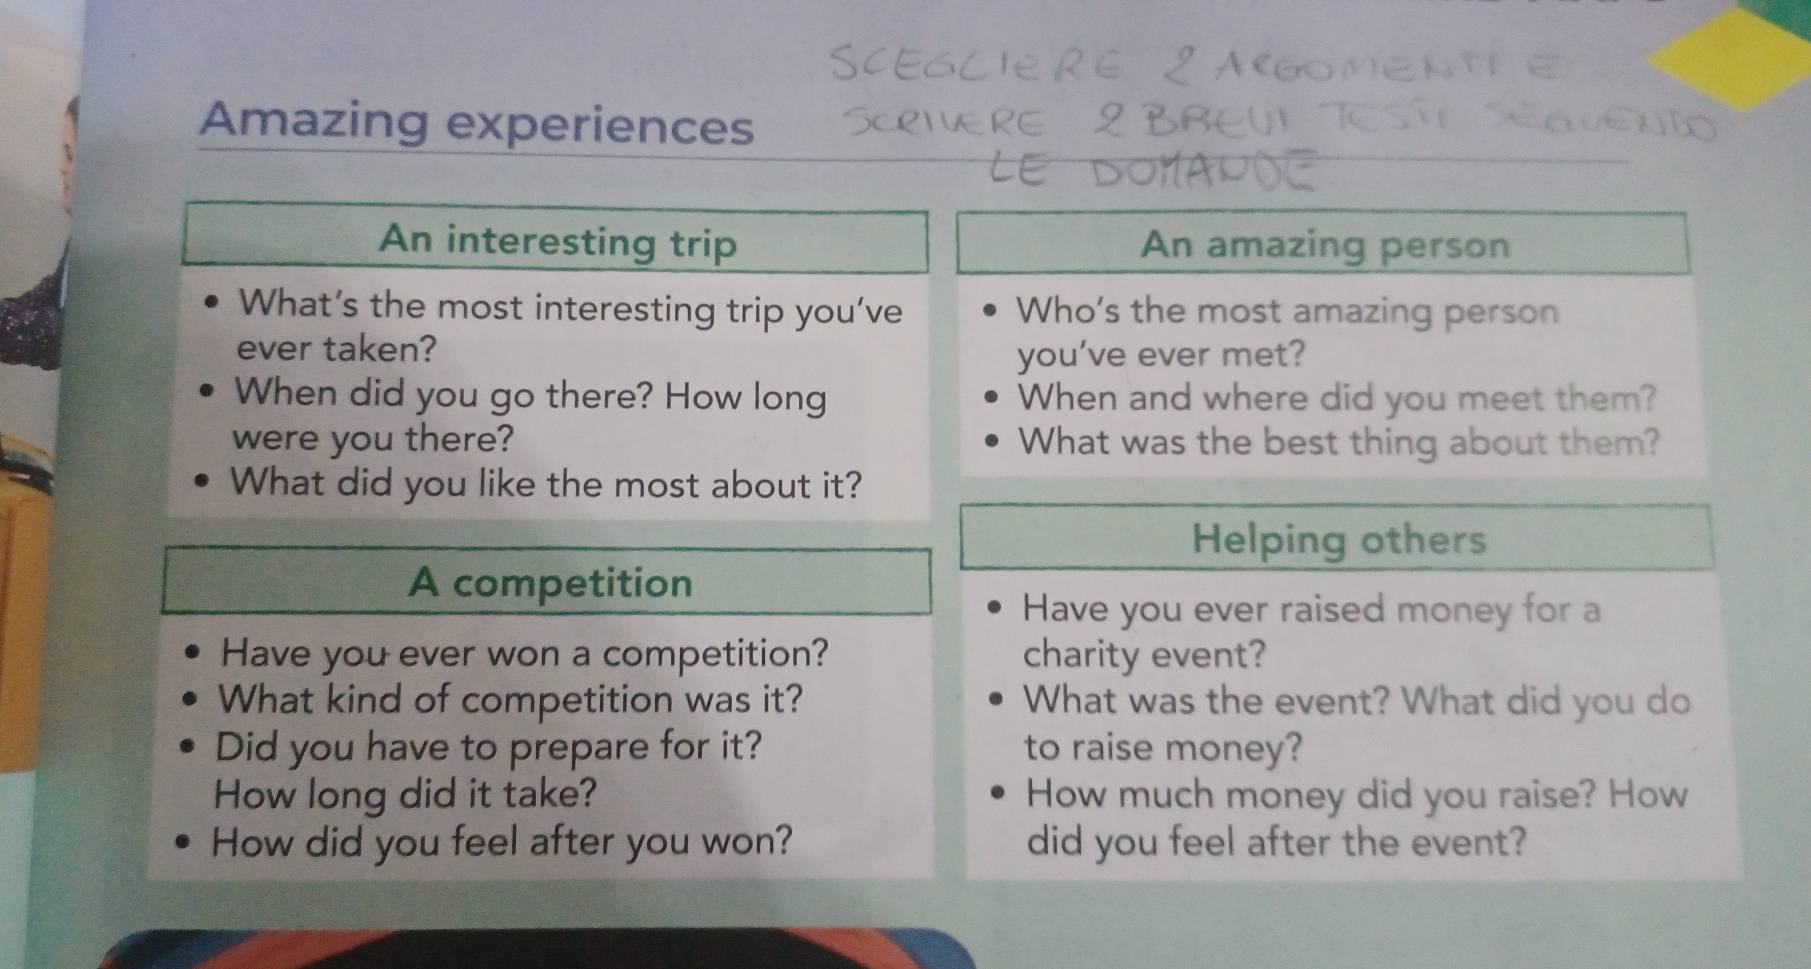 SCEGLIERE 2 ARGOMENTI E
SCRIVERE 2 BREVI TESTI SEGUENDO
LE DOMANDE
Amazing experiences
An interesting trip
• What's the most interesting trip you've
ever taken?
• When did you go there? How long
were you there?
• What did you like the most about it?
An amazing person
• Who's the most amazing person
you've ever met?
• When and where did you meet them?
• What was the best thing about them?
A competition
• Have you ever won a competition?
• What kind of competition was it?
• Did you have to prepare for it?
How long did it take?
• How did you feel after you won?
Helping others
• Have you ever raised money for a
charity event?
• What was the event? What did you do
to raise money?
• How much money did you raise? How
did you feel after the event?